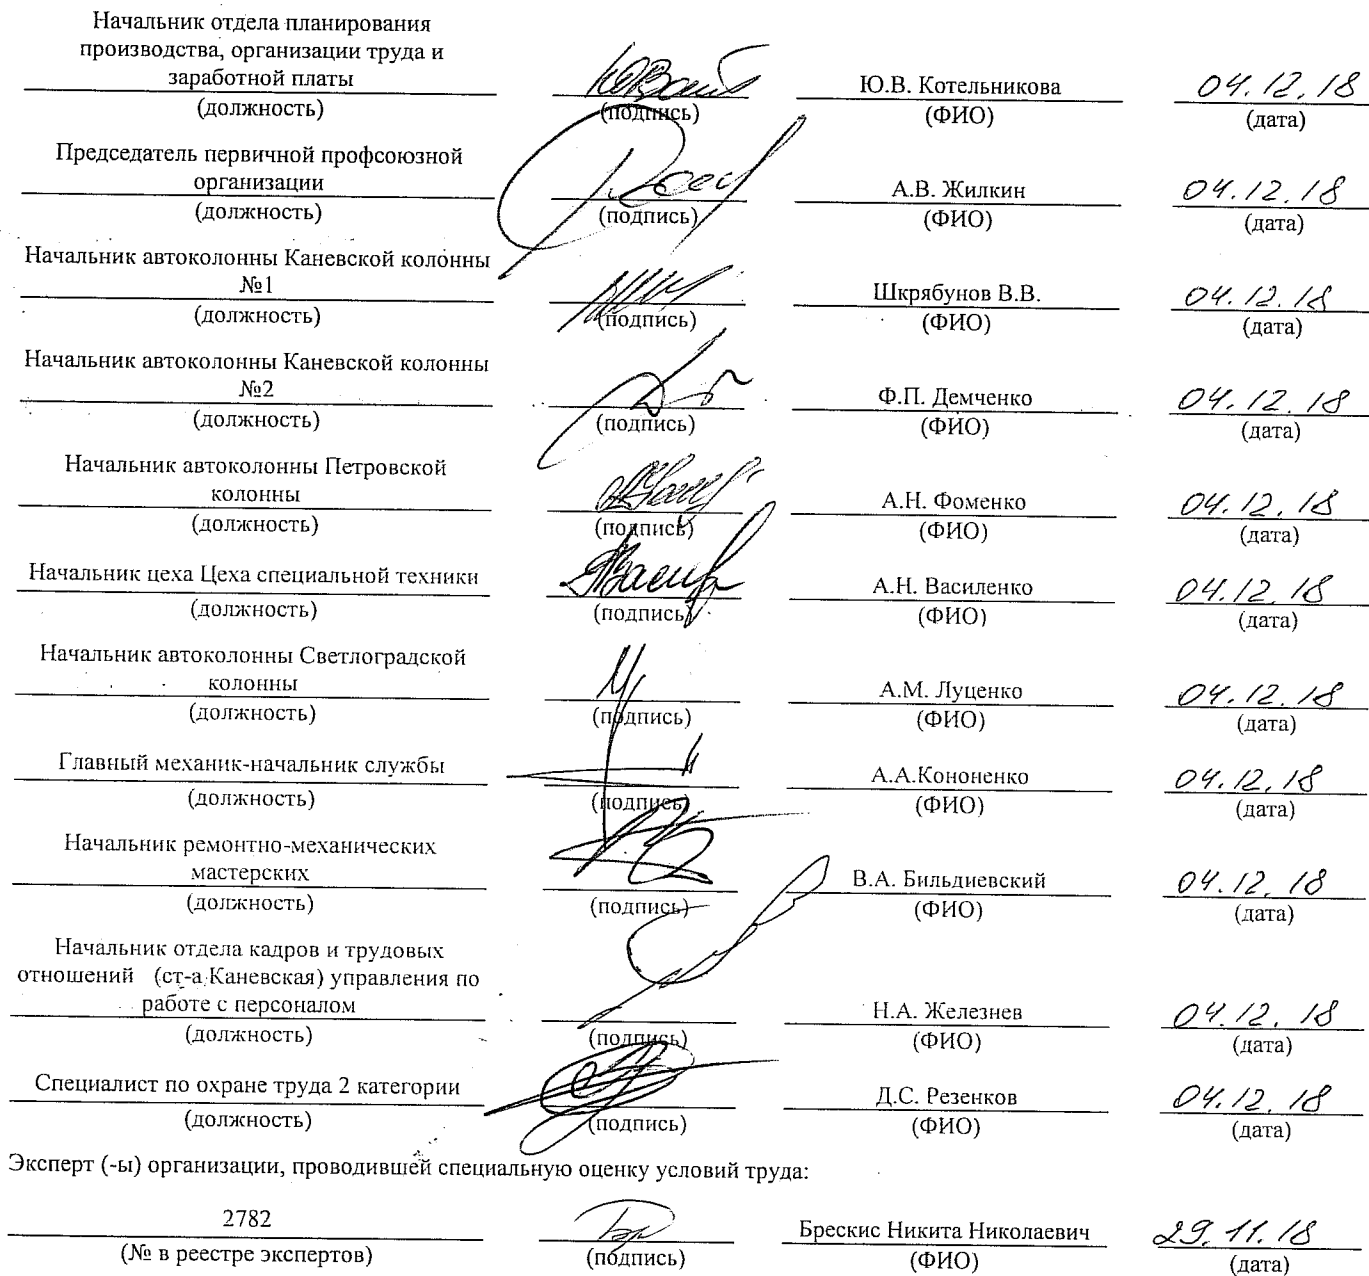 Начальник отдела планирования
производства, организации труда и
заработной платы Ю.В. Котельникова 04.12.18
(должность) (подпись) (ФИО) (дата)
Председатель первичной профсоюзной
организации А.В. Жилкин 04.12.18
(должность) (подпись) (ФИО) (дата)
Начальник автоколонны Каневской колонны
№1 Шкрябунов В.В. 04.12.18
(должность) (подпись) (ФИО) (дата)
Начальник автоколонны Каневской колонны
№2 Ф.П. Демченко 04.12.18
(должность) (подпись) (ФИО) (дата)
Начальник автоколонны Петровской
колонны А.Н. Фоменко 04.12.18
(должность) (подпись) (ФИО) (дата)
Начальник цеха Цеха специальной техники А.Н. Василенко 04.12.18
(должность) (подпись) (ФИО) (дата)
Начальник автоколонны Светлоградской
колонны А.М. Луценко 04.12.18
(должность) (подпись) (ФИО) (дата)
Главный механик-начальник службы А.А.Кононенко 04.12.18
(должность) (подпись) (ФИО) (дата)
Начальник ремонтно-механических
мастерских В.А. Бильдиевский 04.12.18
(должность) (подпись) (ФИО) (дата)
Начальник отдела кадров и трудовых
отношений (ст-а Каневская) управления по
работе с персоналом Н.А. Железнев 04.12.18
(должность) (подпись) (ФИО) (дата)
Специалист по охране труда 2 категории Д.С. Резенков 04.12.18
(должность) (подпись) (ФИО) (дата)
Эксперт (-ы) организации, проводившей специальную оценку условий труда:
2782 Брескис Никита Николаевич 29.11.18
(№ в реестре экспертов) (подпись) (ФИО) (дата)